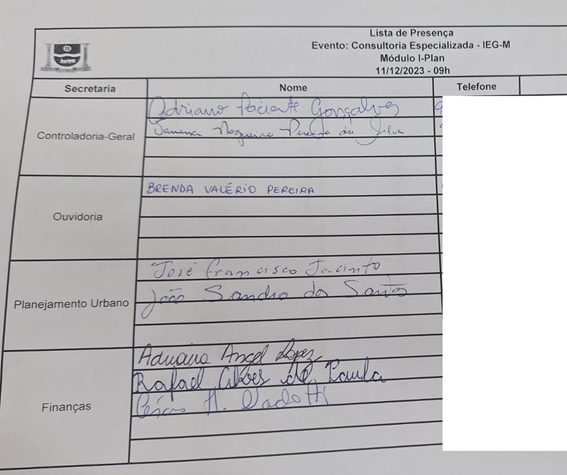 Lista de Presença
Evento: Consultoria Especializada - IEG-M
Módulo I-Plan
11/12/2023 - 09h
Secretaria Nome Telefone
Controladoria-Geral
Adriano Paciente Gonçalves
Pereira da Silva
Ouvidoria
BRENDA VALÉRIO PEREIRA
Planejamento Urbano
José Francisco Jacinto
João Sandro dos Santos
Finanças
Adriana Angel Lopez
Rafael Alves de Paula